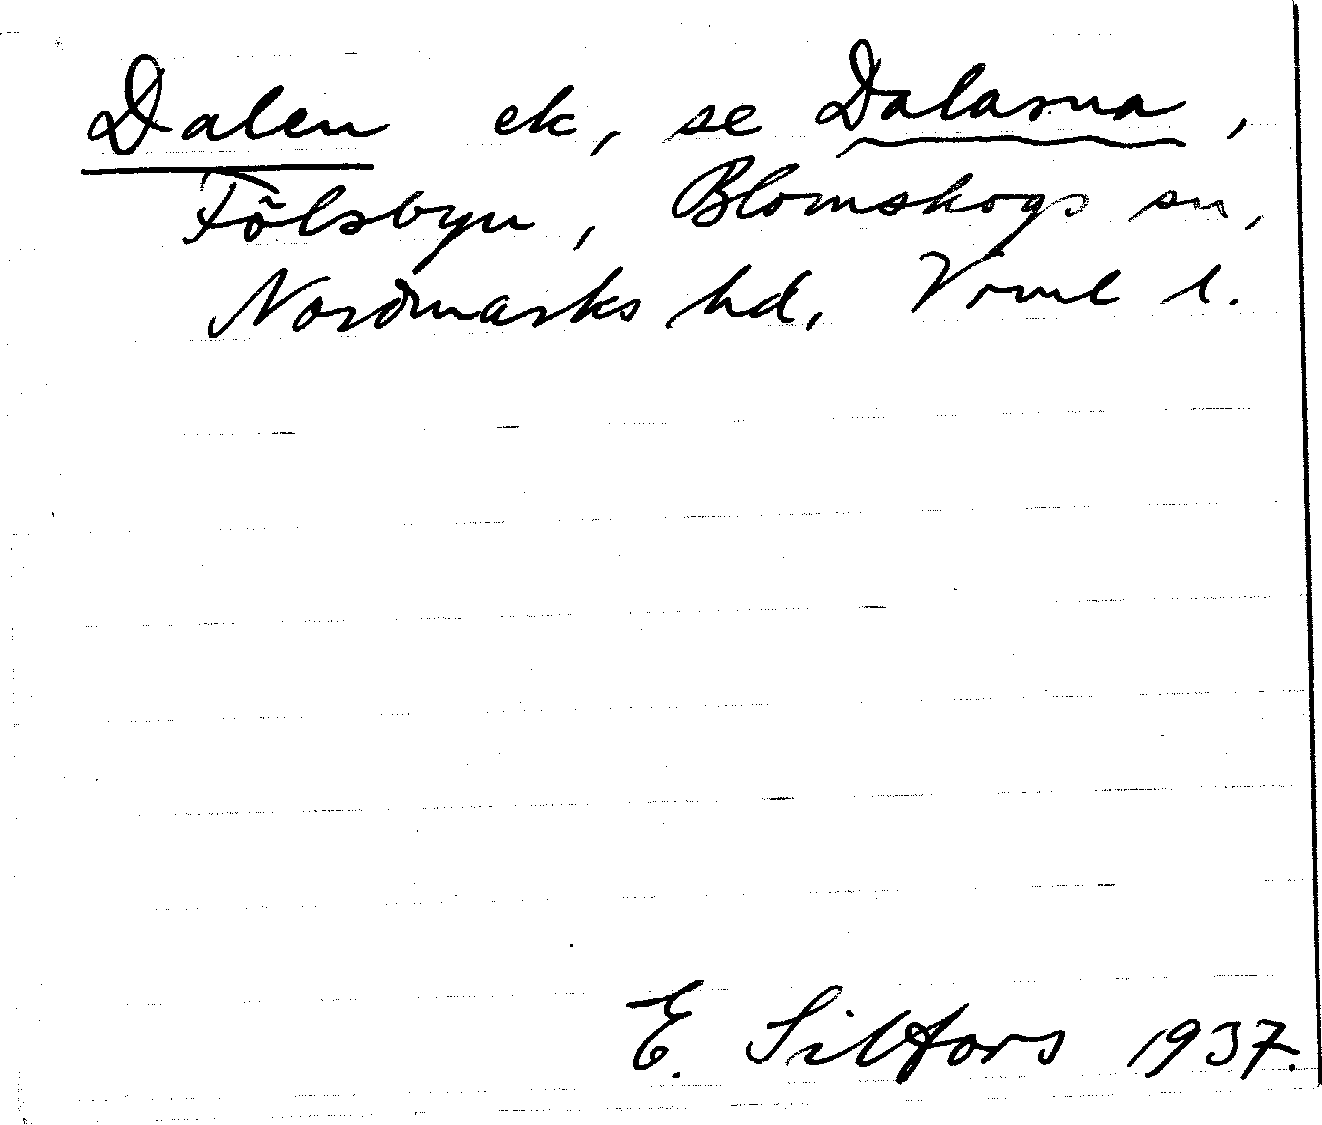 Dalen ek, se Dalarna,
Fölsbyn, Blomskogs sn,
Nordmarks hd, Vrml l.
E. Silfors 1937.